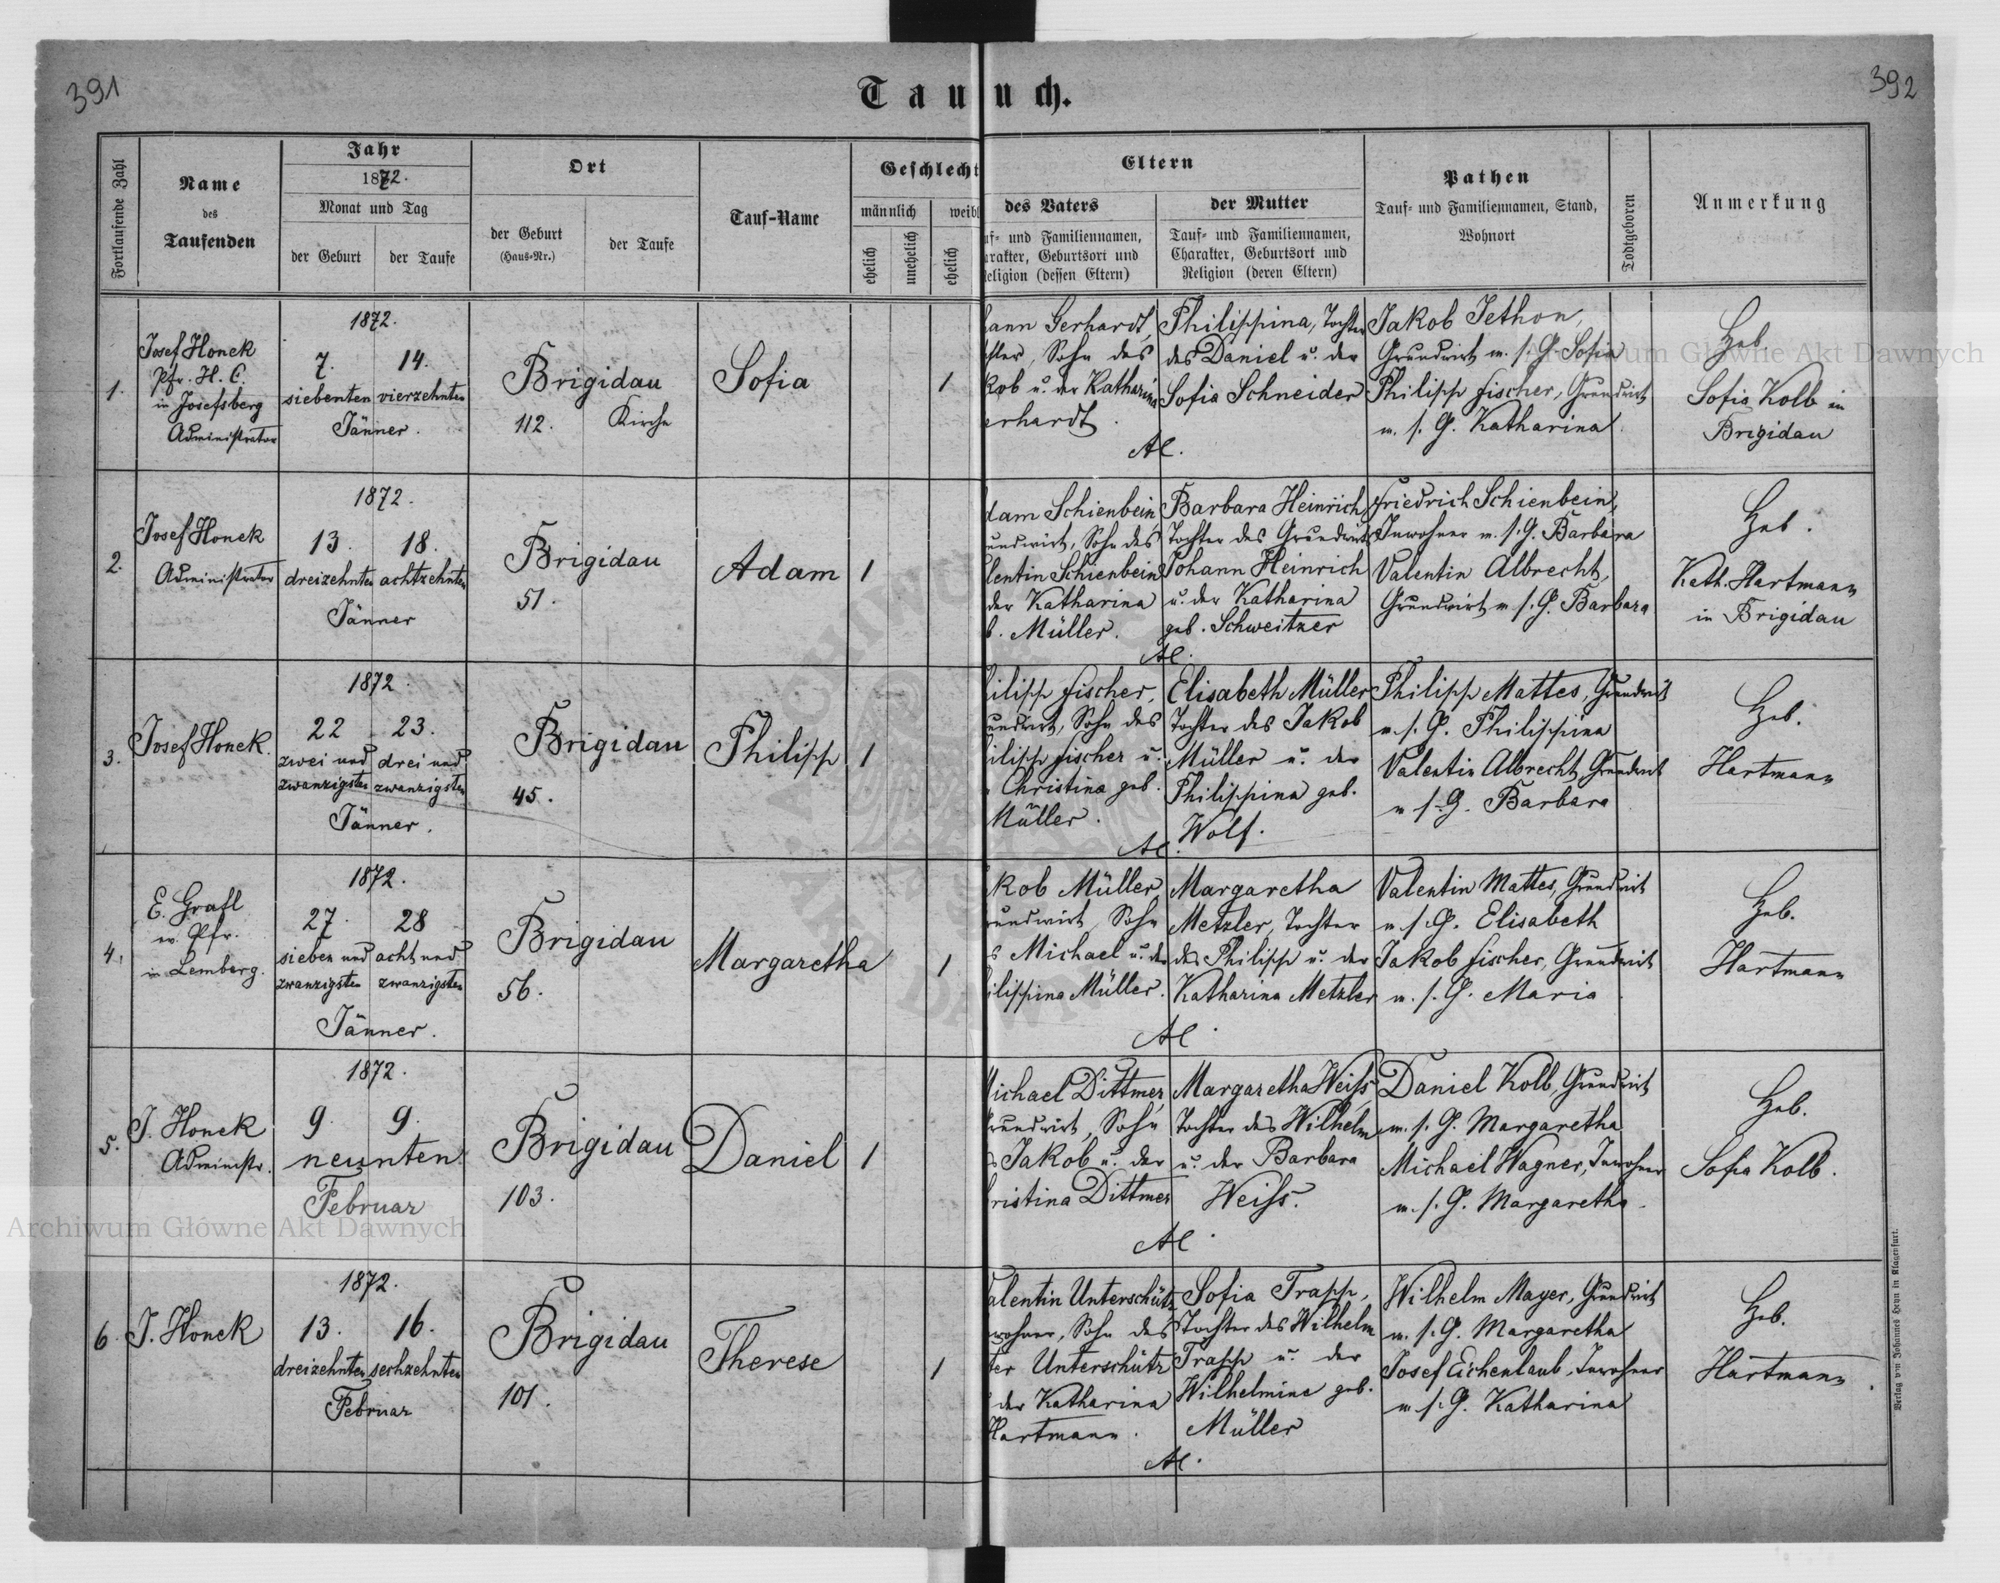 391
392
Tau uch.
Fortlaufende Zahl
Name
des
Taufenden
Jahr
1872.
Monat und Tag
der Geburt
der Taufe
Ort
der Geburt
(Haus-Nr.)
der Taufe
Tauf-Name
Geschlecht
männlich
weibl
ehelich
unehelich
ehelich
Eltern
des Vaters
uf- und Familiennamen,
arakter, Geburtsort und
Religion (dessen Eltern)
der Mutter
Tauf- und Familiennamen,
Charakter, Geburtsort und
Religion (deren Eltern)
Pathen
Tauf- und Familiennamen, Stand,
Wohnort
Todtgeboren
Anmerkung
1.
Josef Honek
Pfr. H. C.
in Josefsberg
Administrator
1872.
7.
siebenten
14.
vierzehnten
Jänner.
Brigidau
112.
Kirche
Sofia
1
hann Gerhardt,
chler, Sohn des
kob u. der Katharina
erhardt.
Philippina, Tochter
des Daniel u. der
Sofia Schneider
AC.
Jakob Jethon,
Grundwirt m. s. G. Sofia
Philipp Fischer, Grundwirt
m. s. G. Katharina
Heb.
Sofia Kolb in
Brigidau
2.
Josef Honek
Administrator
1872.
13.
dreizehnten
18.
achtzehnten
Jänner
Brigidau
51.
Adam
1
dam Schienbein
undwirt, Sohn des
lentin Schienbein
der Katharina
b. Müller.
Barbara Heinrich,
Tochter des Grundwirts
Johann Heinrich
u. der Katharina
geb. Schweitzer
AC.
Friedrich Schienbein,
Inwohner m. s. G. Barbara
Valentin Albrecht,
Grundwirt m. s. G. Barbara
Heb.
Kath. Hartmann
in Brigidau
3.
Josef Honek.
1872.
22
zwei und
zwanzigsten
23.
drei und
zwanzigsten
Jänner.
Brigidau
45.
Philipp
1
ilipp Fischer,
undwirt, Sohn des
ilipp Fischer u.
Christina geb.
Müller.
Elisabeth Müller
Tochter des Jakob
Müller u. der
Philippina geb.
Wolf.
AC.
Philipp Mattes, Grundwirt
m. s. G. Philippina
Valentin Albrecht, Grundwirt
m. s. G. Barbara
Heb.
Hartmann
4.
E. Grafl
ev. Pfr.
in Lemberg.
1872.
27.
sieben und
zwanzigsten
28
acht und
zwanzigsten
Jänner.
Brigidau
56.
Margaretha
1
kob Müller,
rundwirt, Sohn
s Michael u. der
ilippina Müller.
Margaretha
Metzler, Tochter
des Philipp u. der
Katharina Metzler
AC.
Valentin Mattes, Grundwirt
m. s. G. Elisabeth
Jakob Fischer, Grundwirt
m. s. G. Maria
Heb.
Hartmann
5.
J. Honek
Administr.
1872.
9.
9.
neunten
Februar
Brigidau
103.
Daniel
1
Michael Dittmer,
rundwirt, Sohn
s Jakob u. der
ristina Dittmer
Margaretha Weiß,
Tochter des Wilhelm
u. der Barbara
Weiß.
AC.
Daniel Kolb, Grundwirt
m. s. G. Margaretha
Michael Wagner, Inwohner
m. s. G. Margaretha.
Heb.
Sofia Kolb.
6.
J. Honek
1872.
13.
dreizehnten
16.
sechzehnten
Februar
Brigidau
101.
Therese
1
alentin Unterschütz
wohner, Sohn des
ter Unterschütz
der Katharina
Hartmann.
Sofia Trapp,
Tochter des Wilhelm
Trapp u. der
Wilhelmine geb.
Müller
AC.
Wilhelm Mayer, Grundwirt
m. s. G. Margaretha
Josef Eichenlaub, Inwohner
m. s. G. Katharina
Heb.
Hartmann.
Verlag von Johannes Heyn in Klagenfurt.
Archiwum Główne Akt Dawnych
Archiwum Główne Akt Dawnych